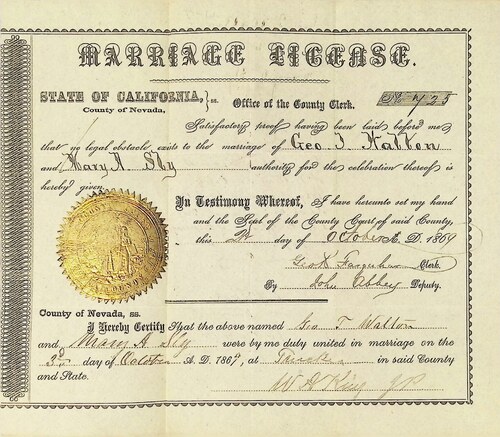 MARRIAGE LICENSE.
STATE OF CALIFORNIA, } ss. Office of the County Clerk. No 725
County of Nevada,
Satisfactory proof having been laid before me
that no legal obstacle exists to the marriage of Geo. T. Walton
and Mary A. Sly authority for the celebration thereof is
hereby given.
In Testimony Whereof, I have hereunto set my hand
and the Seal of the County Court of said County,
this day of October A. D. 1869
Geo K Farquhar Clerk.
By John Abbey Deputy.
County of Nevada, ss.
I Hereby Certify That the above named Geo T Walton
and Mary A Sly were by me duly united in marriage on the
3d day of October A. D. 1869, at Truckee in said County
and State.
W A King J P